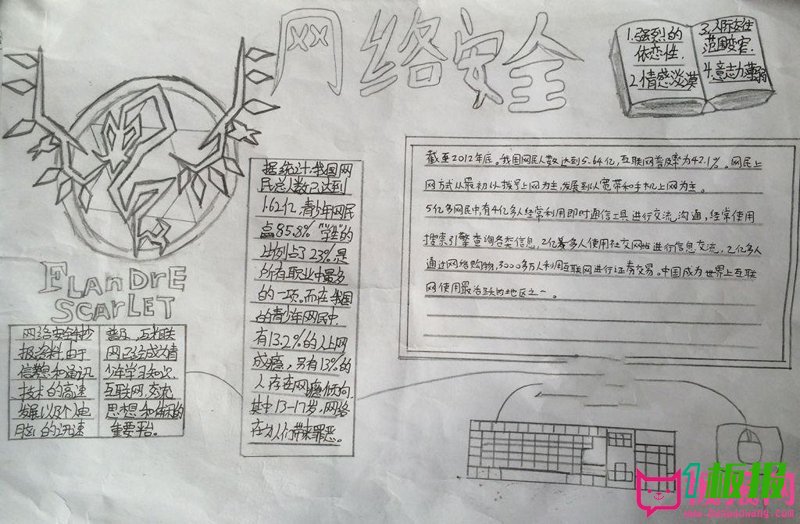 网络安全
1.强烈的
依恋性.
2.情感淡漠
3.人际交往
范围变窄.
4.意志力薄弱
FLANDRE
SCARLET
据统计,我国网
民总人数已达到
1.62亿,青少年网民
占85.8%"学生"的
比例占了23%,是
所有职业中最多
的一项。而在我国
的青少年网民中,
有13.2%的人上网
成瘾,另有13%的
人存在网瘾倾向.
其中13-17岁,网络
在为人们带来罪恶。
截至2012年底。我国网民人数达到5.64亿,互联网普及率为42.1%。网民上
网方式从最初以拨号上网为主,发展到以宽带和手机上网为主。
5亿多网民中有4亿多人经常利用即时通信工具进行交流沟通,经常使用
搜索引擎查询各类信息,2亿多人使用社交网站进行信息交流,2亿多人
通过网络购物,3000多万人利用互联网进行证券交易。中国成为世界上互联
网使用最活跃的地区之一。
网络安全手抄
报资料:由于
信息和通讯
技术的高速
发展以及个人电
脑的迅速
普及,互相联
网已经成为青
少年学习知识、
互联网,交流
思想和休闲的
重要平台。
1板报网
www.banbaowang.com